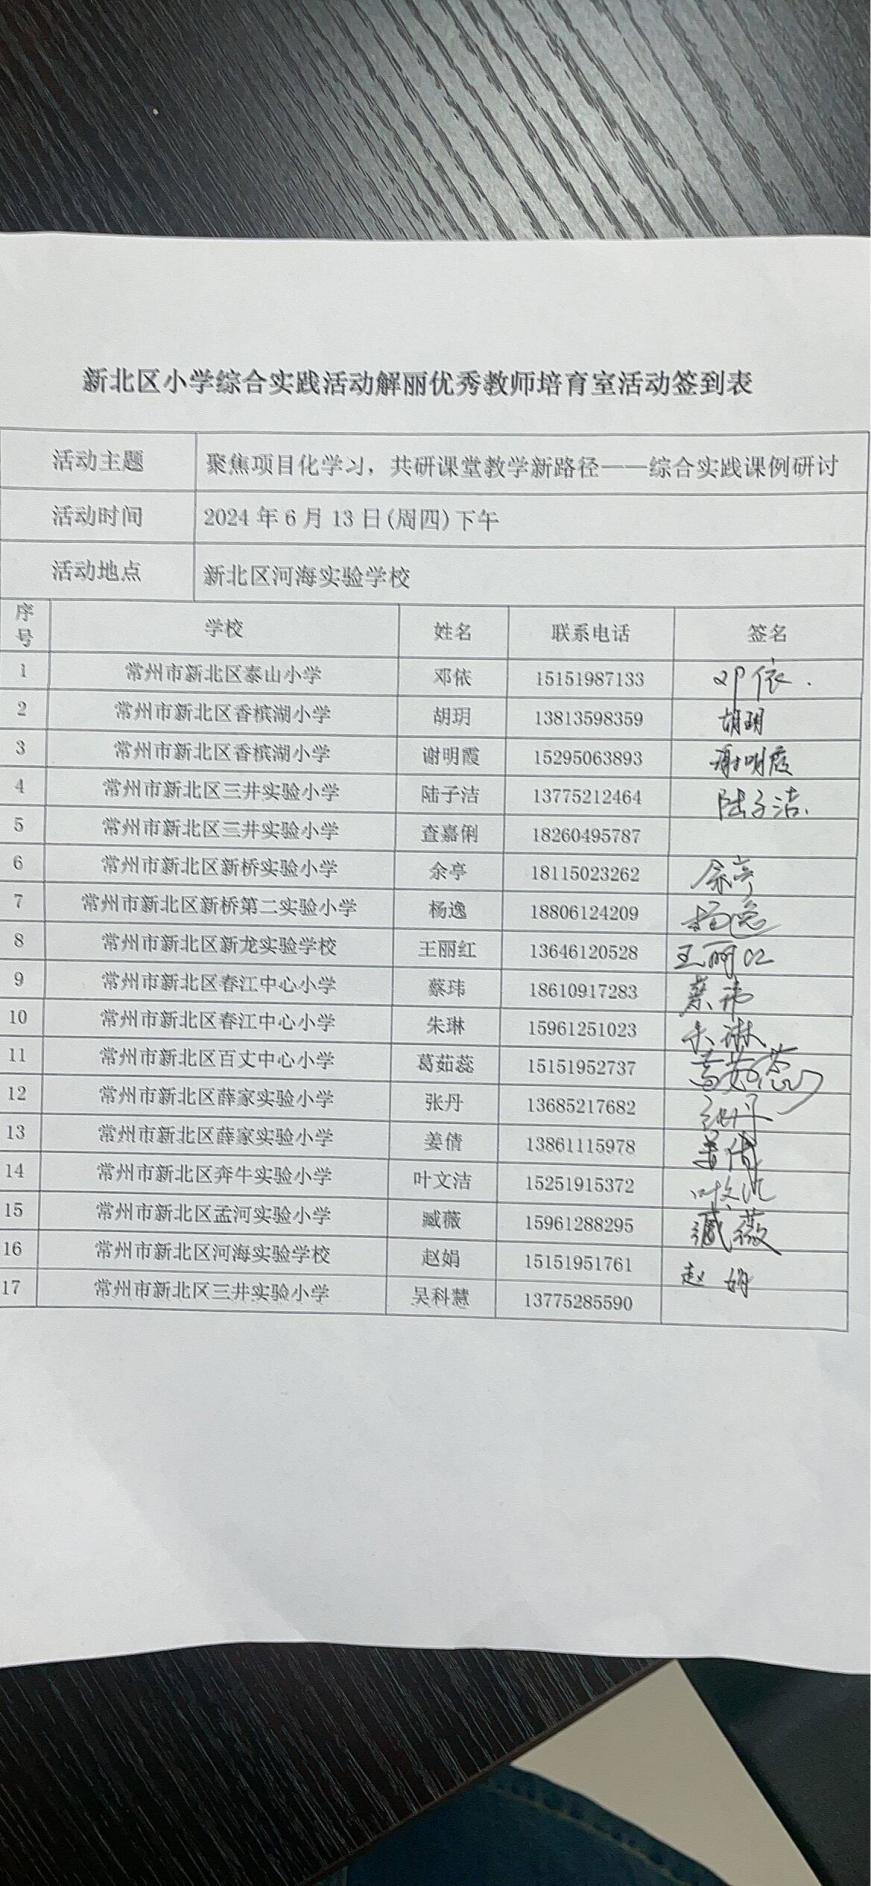 新北区小学综合实践活动解丽优秀教师培育室活动签到表
活动主题 聚焦项目化学习，共研课堂教学新路径——综合实践课例研讨
活动时间 2024年6月13日(周四)下午
活动地点 新北区河海实验学校
序号 学校 姓名 联系电话 签名
1 常州市新北区泰山小学 邓依 15151987133 邓依.
2 常州市新北区香槟湖小学 胡玥 13813598359 胡玥
3 常州市新北区香槟湖小学 谢明霞 15295063893 谢明霞
4 常州市新北区三井实验小学 陆子洁 13775212464 陆子洁.
5 常州市新北区三井实验小学 查嘉俐 18260495787
6 常州市新北区新桥实验小学 余亭 18115023262 余亭
7 常州市新北区新桥第二实验小学 杨逸 18806124209 杨逸
8 常州市新北区新龙实验学校 王丽红 13646120528 王丽红
9 常州市新北区春江中心小学 蔡玮 18610917283 蔡玮
10 常州市新北区春江中心小学 朱琳 15961251023 朱琳
11 常州市新北区百丈中心小学 葛茹蕊 15151952737 葛茹蕊
12 常州市新北区薛家实验小学 张丹 13685217682 张丹
13 常州市新北区薛家实验小学 姜倩 13861115978 姜倩
14 常州市新北区奔牛实验小学 叶文洁 15251915372 叶文洁
15 常州市新北区孟河实验小学 臧薇 15961288295 臧薇
16 常州市新北区河海实验学校 赵娟 15151951761 赵娟
17 常州市新北区三井实验小学 吴科慧 13775285590